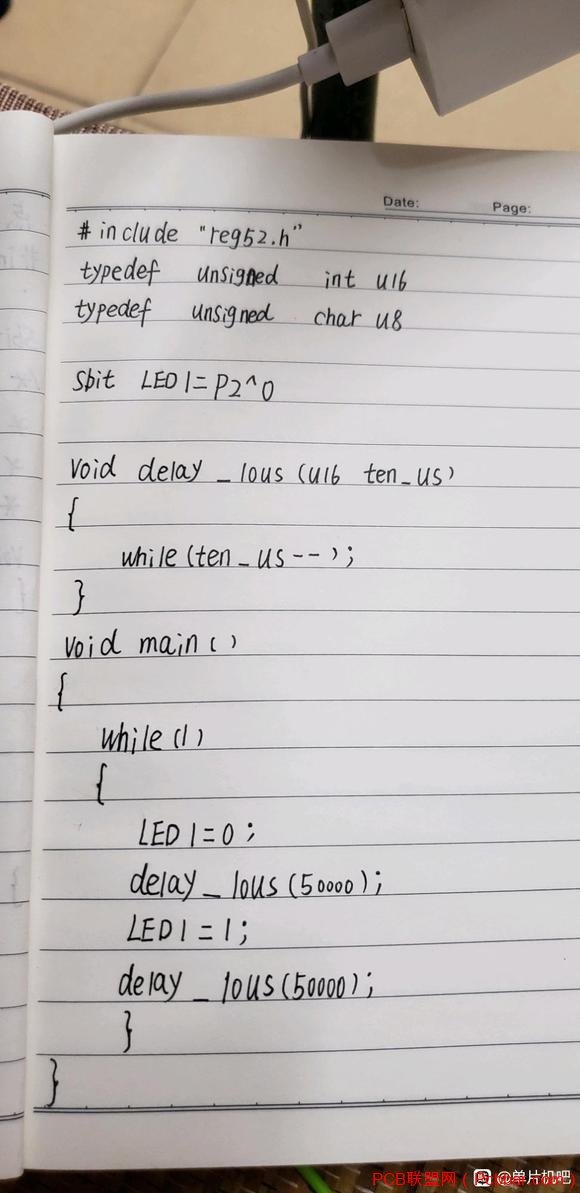 Date: Page:
#include "reg52.h"
typedef unsigned int u16
typedef unsigned char u8
Sbit LED1=P2^0
void delay_10us(u16 ten_us)
{
while(ten_us--);
}
void main()
{
while(1)
{
LED1=0;
delay_10us(50000);
LED1=1;
delay_10us(50000);
}
}
@单片机吧
PCB联盟网